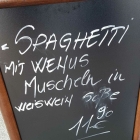 SPAGHETTI
MIT WENUS
Muscheln in
weiswein soße
11,90